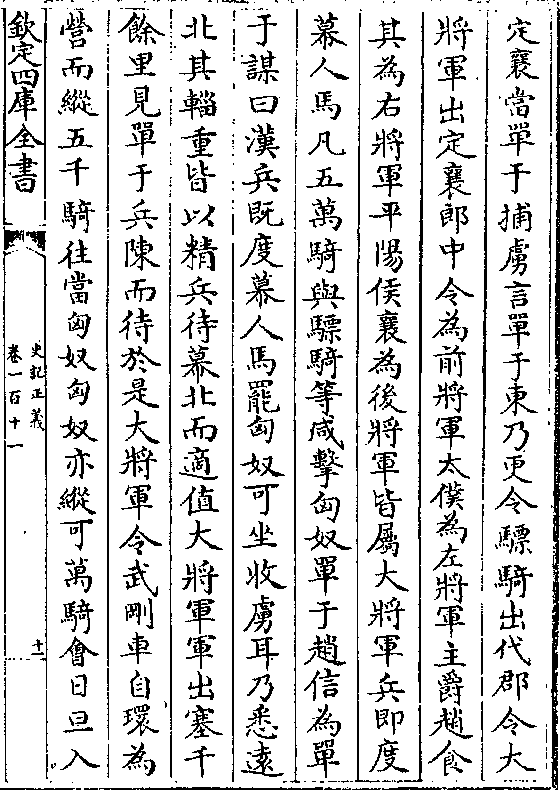 定襄當單于捕虜言單于東乃更令驃騎出代郡令大
將軍出定襄郎中令為前將軍太僕為左將軍主爵趙食
其為右將軍平陽侯襄為後將軍皆屬大將軍兵即度
幕人馬凡五萬騎與驃騎等咸擊匈奴單于趙信為單
于謀曰漢兵既度幕人馬罷匈奴可坐收虜耳乃悉遠
北其輜重皆以精兵待幕北而適值大將軍軍出塞千
餘里見單于兵陳而待於是大將軍令武剛車自環為
營而縱五千騎往當匈奴匈奴亦縱可萬騎會日旦入
欽定四庫全書
史記正義
卷一百十一
十一